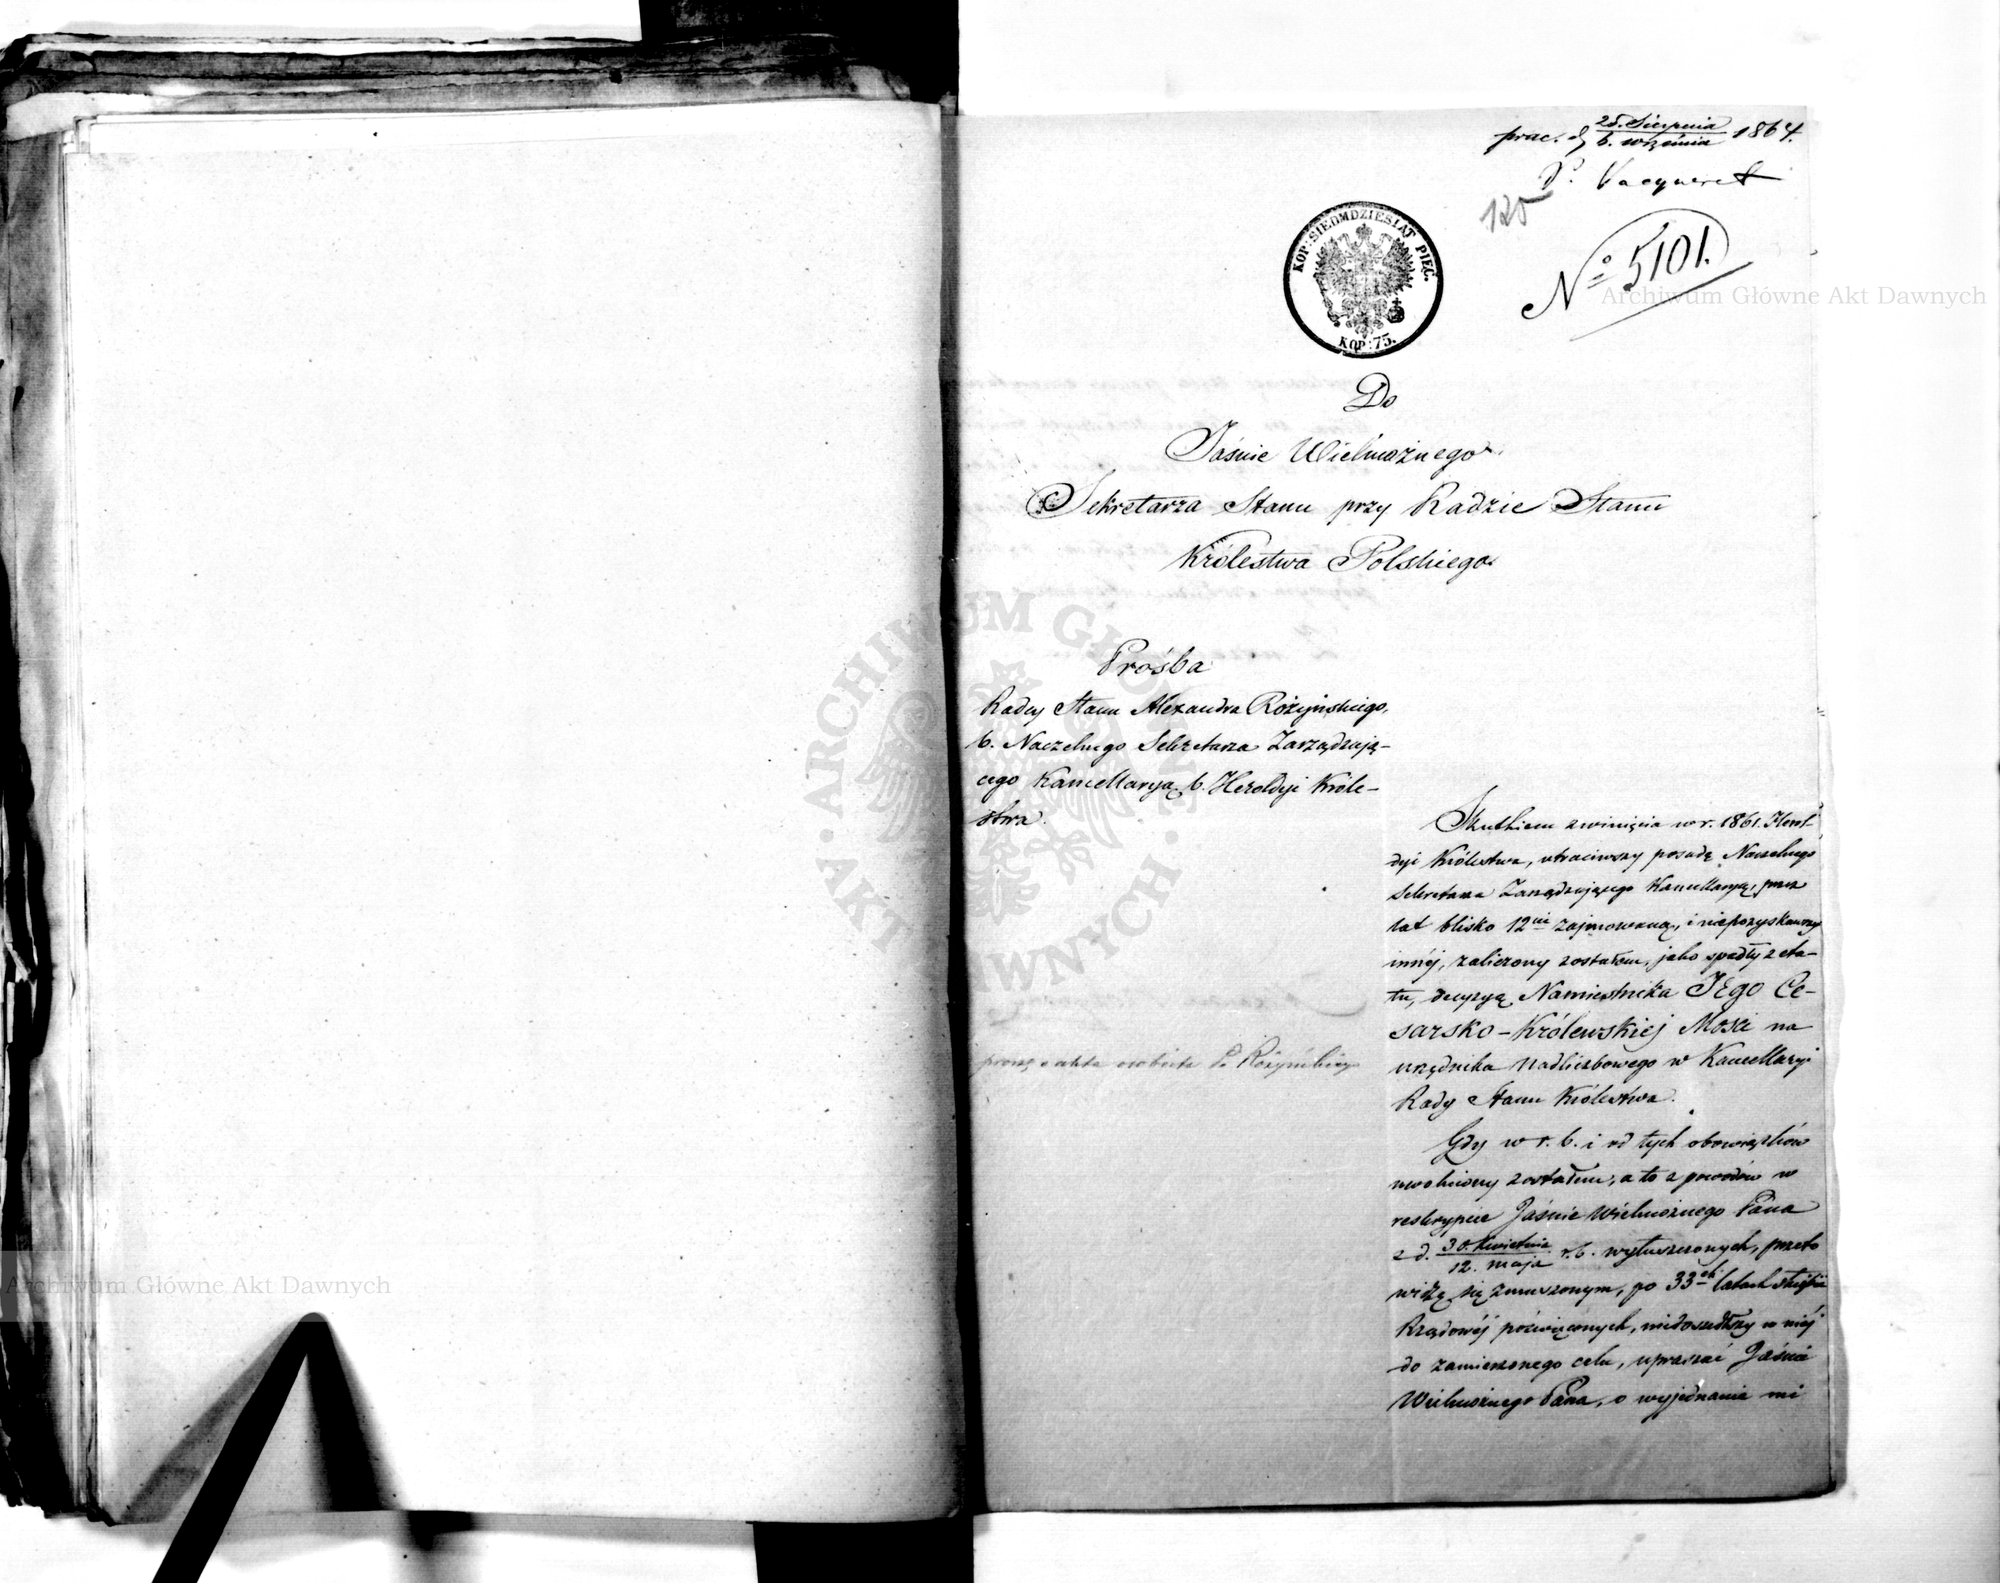 prac. d. 25. Sierpnia 1864.
6. września
P. Vacqueret
125
No 5101.
KOP: SIEDMDZIESIĄT PIĘĆ.
KOP: 75.
Do
Jaśnie Wielmożnego
Sekretarza Stanu przy Radzie Stanu
Królestwa Polskiego
Prośba
Radcy Stanu Alexandra Różyńskiego,
b. Naczelnego Sekretarza Zarządzają-
cego Kancellaryą b. Heroldyi Króle-
stwa.
proszę o akta osobiste P. Różyńskiego
Skutkiem zwinięcia w r. 1861. Herol-
dyi Królestwa, utraciwszy posadę Naczelnego
Sekretarza Zarządzającego Kancellaryą, przez
lat blisko 12cie zajmowaną, i niepozyskawszy
innéj, zaliczony zostałem, jako spadły z eta-
tu, decyzyą Namiestnika JEgo Ce-
sarsko-Królewskiej Mości na
urzędnika nadliczbowego w Kancellaryi
Rady Stanu Królestwa.
Gdy w r. b. i od tych obowiązków
uwolniony zostałem, a to z powodów w
reskrypcie Jaśnie Wielmożnego Pana
z d. 30. Kwietnia r. b. wyłuszczonych, przeto
12. maja
widzę się zmuszonym, po 33ch latach służbie
Rządowéj poświęconych, niedoszedłszy w niéj
do zamierzonego celu, upraszać Jaśnie
Wielmożnego Pana, o wyjednanie mi
Archiwum Główne Akt Dawnych
Archiwum Główne Akt Dawnych
ARCHIWUM GŁÓWNE AKT DAWNYCH